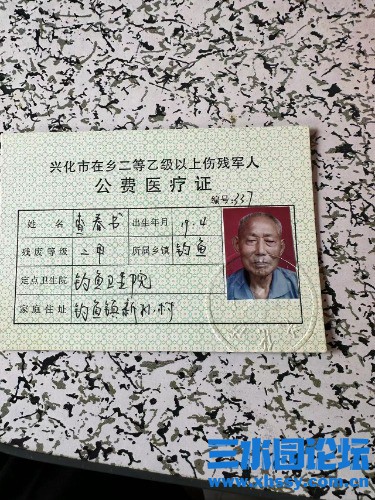 兴化市在乡二等乙级以上伤残军人
公费医疗证
编号:337
姓名 春书 出生年月 19.4
残废等级 二甲 所属乡镇 钓鱼
定点卫生院 钓鱼卫生院
家庭住址 钓鱼镇新孙村
三水园论坛
www.xhssy.com.cn